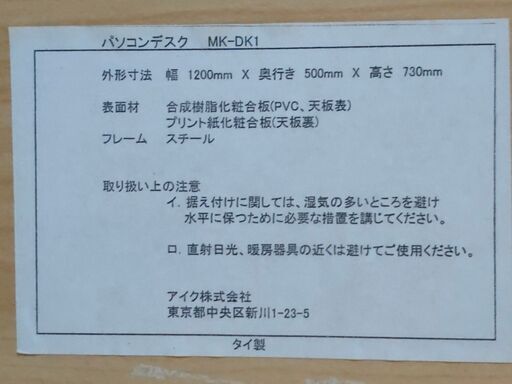 パソコンデスク MK-DK1
外形寸法 幅 1200mm X 奥行き 500mm X 高さ 730mm
表面材 合成樹脂化粧合板(PVC、天板表)
プリント紙化粧合板(天板裏)
フレーム スチール
取り扱い上の注意
イ. 据え付けに関しては、湿気の多いところを避け
水平に保つために必要な措置を講じてください。
ロ. 直射日光、暖房器具の近くは避けてご使用ください。
アイク株式会社
東京都中央区新川1-23-5
タイ製